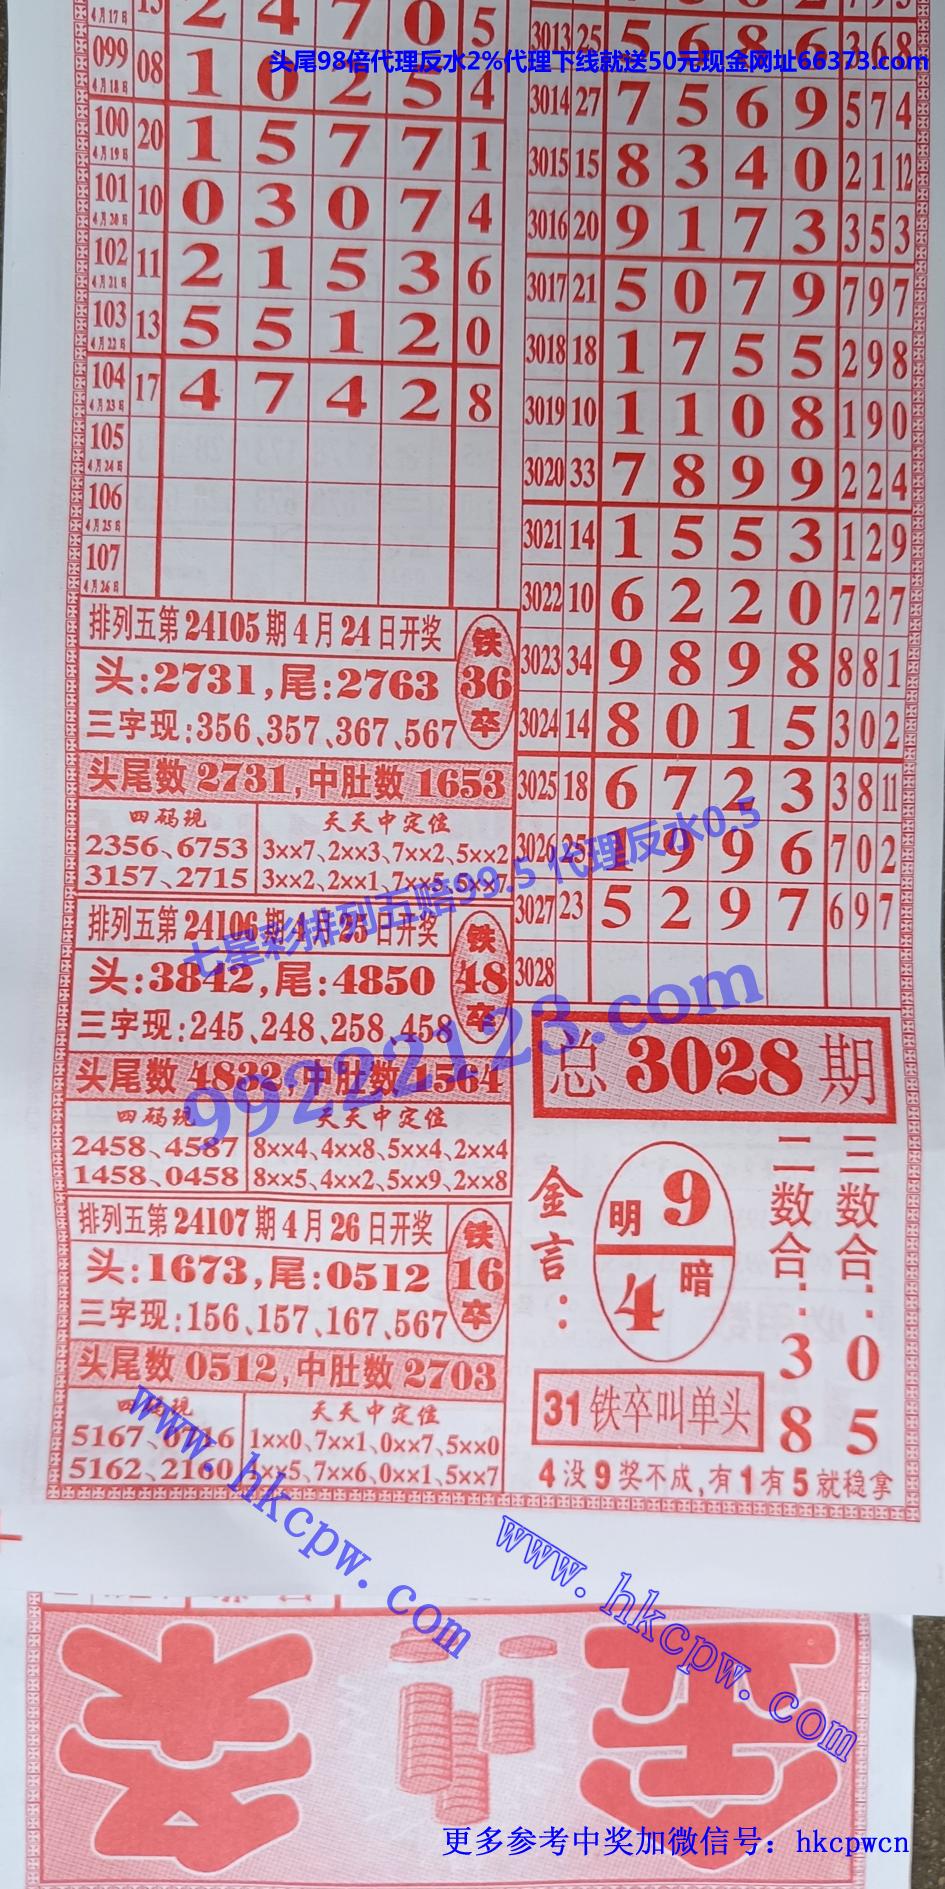 4月17日 2 4 7 0 5
头尾98倍代理反水2%代理下线就送50元现金网址66373.com
099 4月18日 08 1 0 2 5 4
100 4月19日 20 1 5 7 7 1
101 4月20日 10 0 3 0 7 4
102 4月21日 11 2 1 5 3 6
103 4月22日 13 5 5 1 2 0
104 4月23日 17 4 7 4 2 8
105 4月24日
106 4月25日
107 4月26日
排列五第24105期4月24日开奖
头:2731,尾:2763
三字现:356、357、367、567
铁36卒
头尾数2731,中肚数1653
四码现
2356、6753
3157、2715
天天中定位
3××7、2××3、7××2、5××2
3××2、2××1、7××5、5××7
排列五第24106期4月25日开奖
头:3842,尾:4850
三字现:245、248、258、458
铁48卒
头尾数4832,中肚数1564
四码现
2458、4587
1458、0458
天天中定位
8××4、4××8、5××4、2××4
8××5、4××2、5××9、2××8
排列五第24107期4月26日开奖
头:1673,尾:0512
三字现:156、157、167、567
铁16卒
头尾数0512,中肚数2703
四码现
5162、2160
天天中定位
1××0、7××1、0××7、5××0
4××5、7××6、0××1、5××7
3013 25 5 6 8 6 3 6 8
3014 27 7 5 6 9 5 7 4
3015 15 8 3 4 0 2 1 12
3016 20 9 1 7 3 3 5 3
3017 21 5 0 7 9 7 9 7
3018 18 1 7 5 5 2 9 8
3019 10 1 1 0 8 1 9 0
3020 33 7 8 9 9 2 2 4
3021 14 1 5 5 3 1 2 9
3022 10 6 2 2 0 7 2 7
3023 34 9 8 9 8 8 8 1
3024 14 8 0 1 5 3 0 2
3025 18 6 7 2 3 3 8 11
3026 25 1 9 9 6 7 0 2
3027 23 5 2 9 7 6 9 7
3028
总3028期
金言:
明9
4暗
二数合:38
三数合:05
31铁卒叫单头
4没9奖不成,有1有5就稳拿
七星彩排列五赔99.5 代理反水0.5
99222123.com
www.hkcpw.com
www.hkcpw.com
更多参考中奖加微信号：hkcpwcn